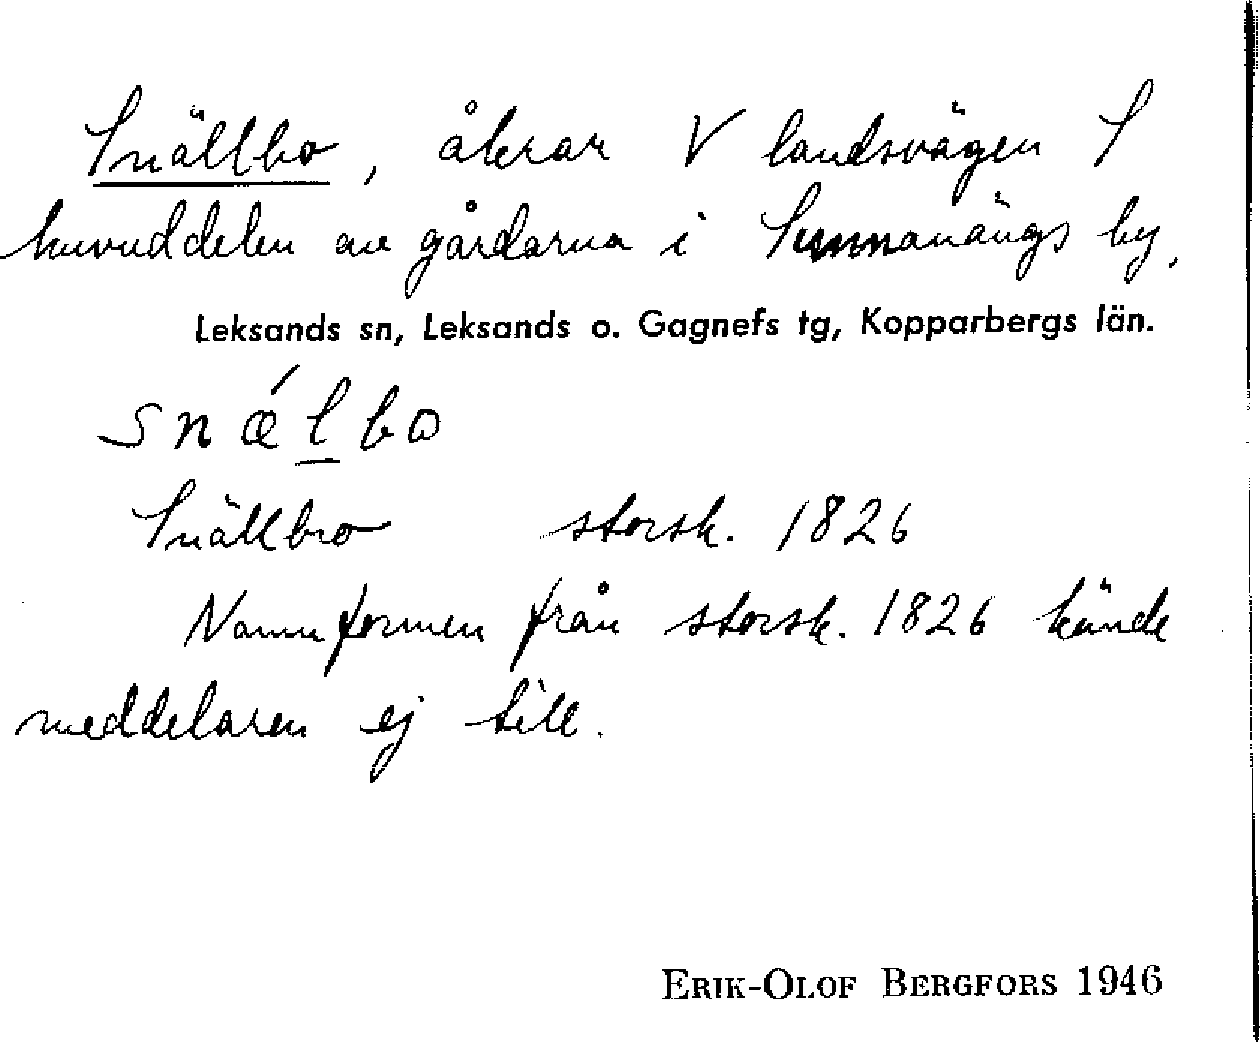 Snällbo, åkrar V landsvägen S
huvuddelen av gårdarna i Sunnanängs by.
Leksands sn, Leksands o. Gagnefs tg, Kopparbergs län.
snǽlbo
Snällbro storsk. 1826
Namnformen från storsk. 1826 kände
meddelaren ej till.
ERIK-OLOF BERGFORS 1946